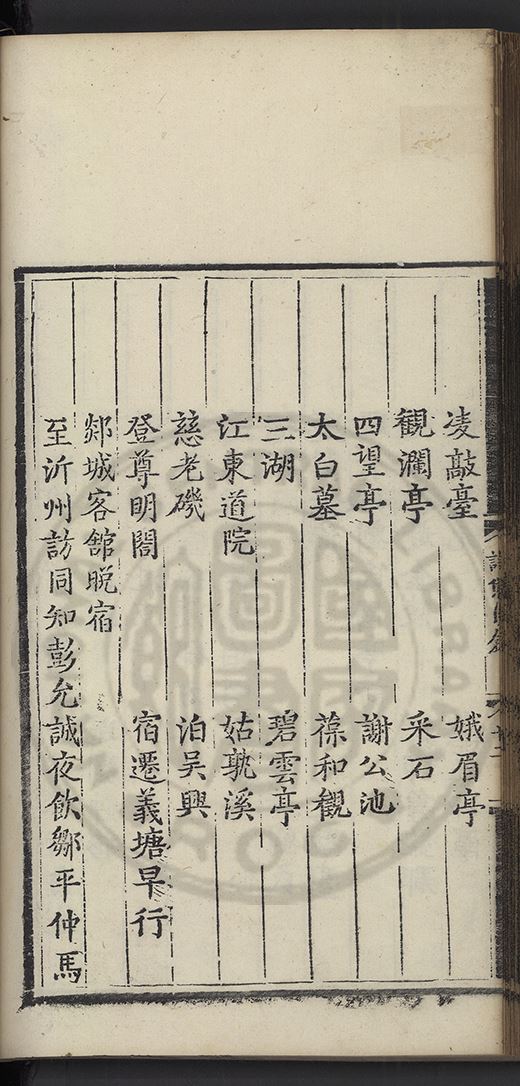 凌敲臺 娥眉亭
觀瀾亭 采石
四望亭 謝公池
太白墓 葆和觀
三湖 碧雲亭
江東道院 姑孰溪
慈老磯 泊吳興
登尊明閣 宿遷義塘早行
郯城客館晚宿
至沂州訪同知彭允誠夜飲鄒平仲馬